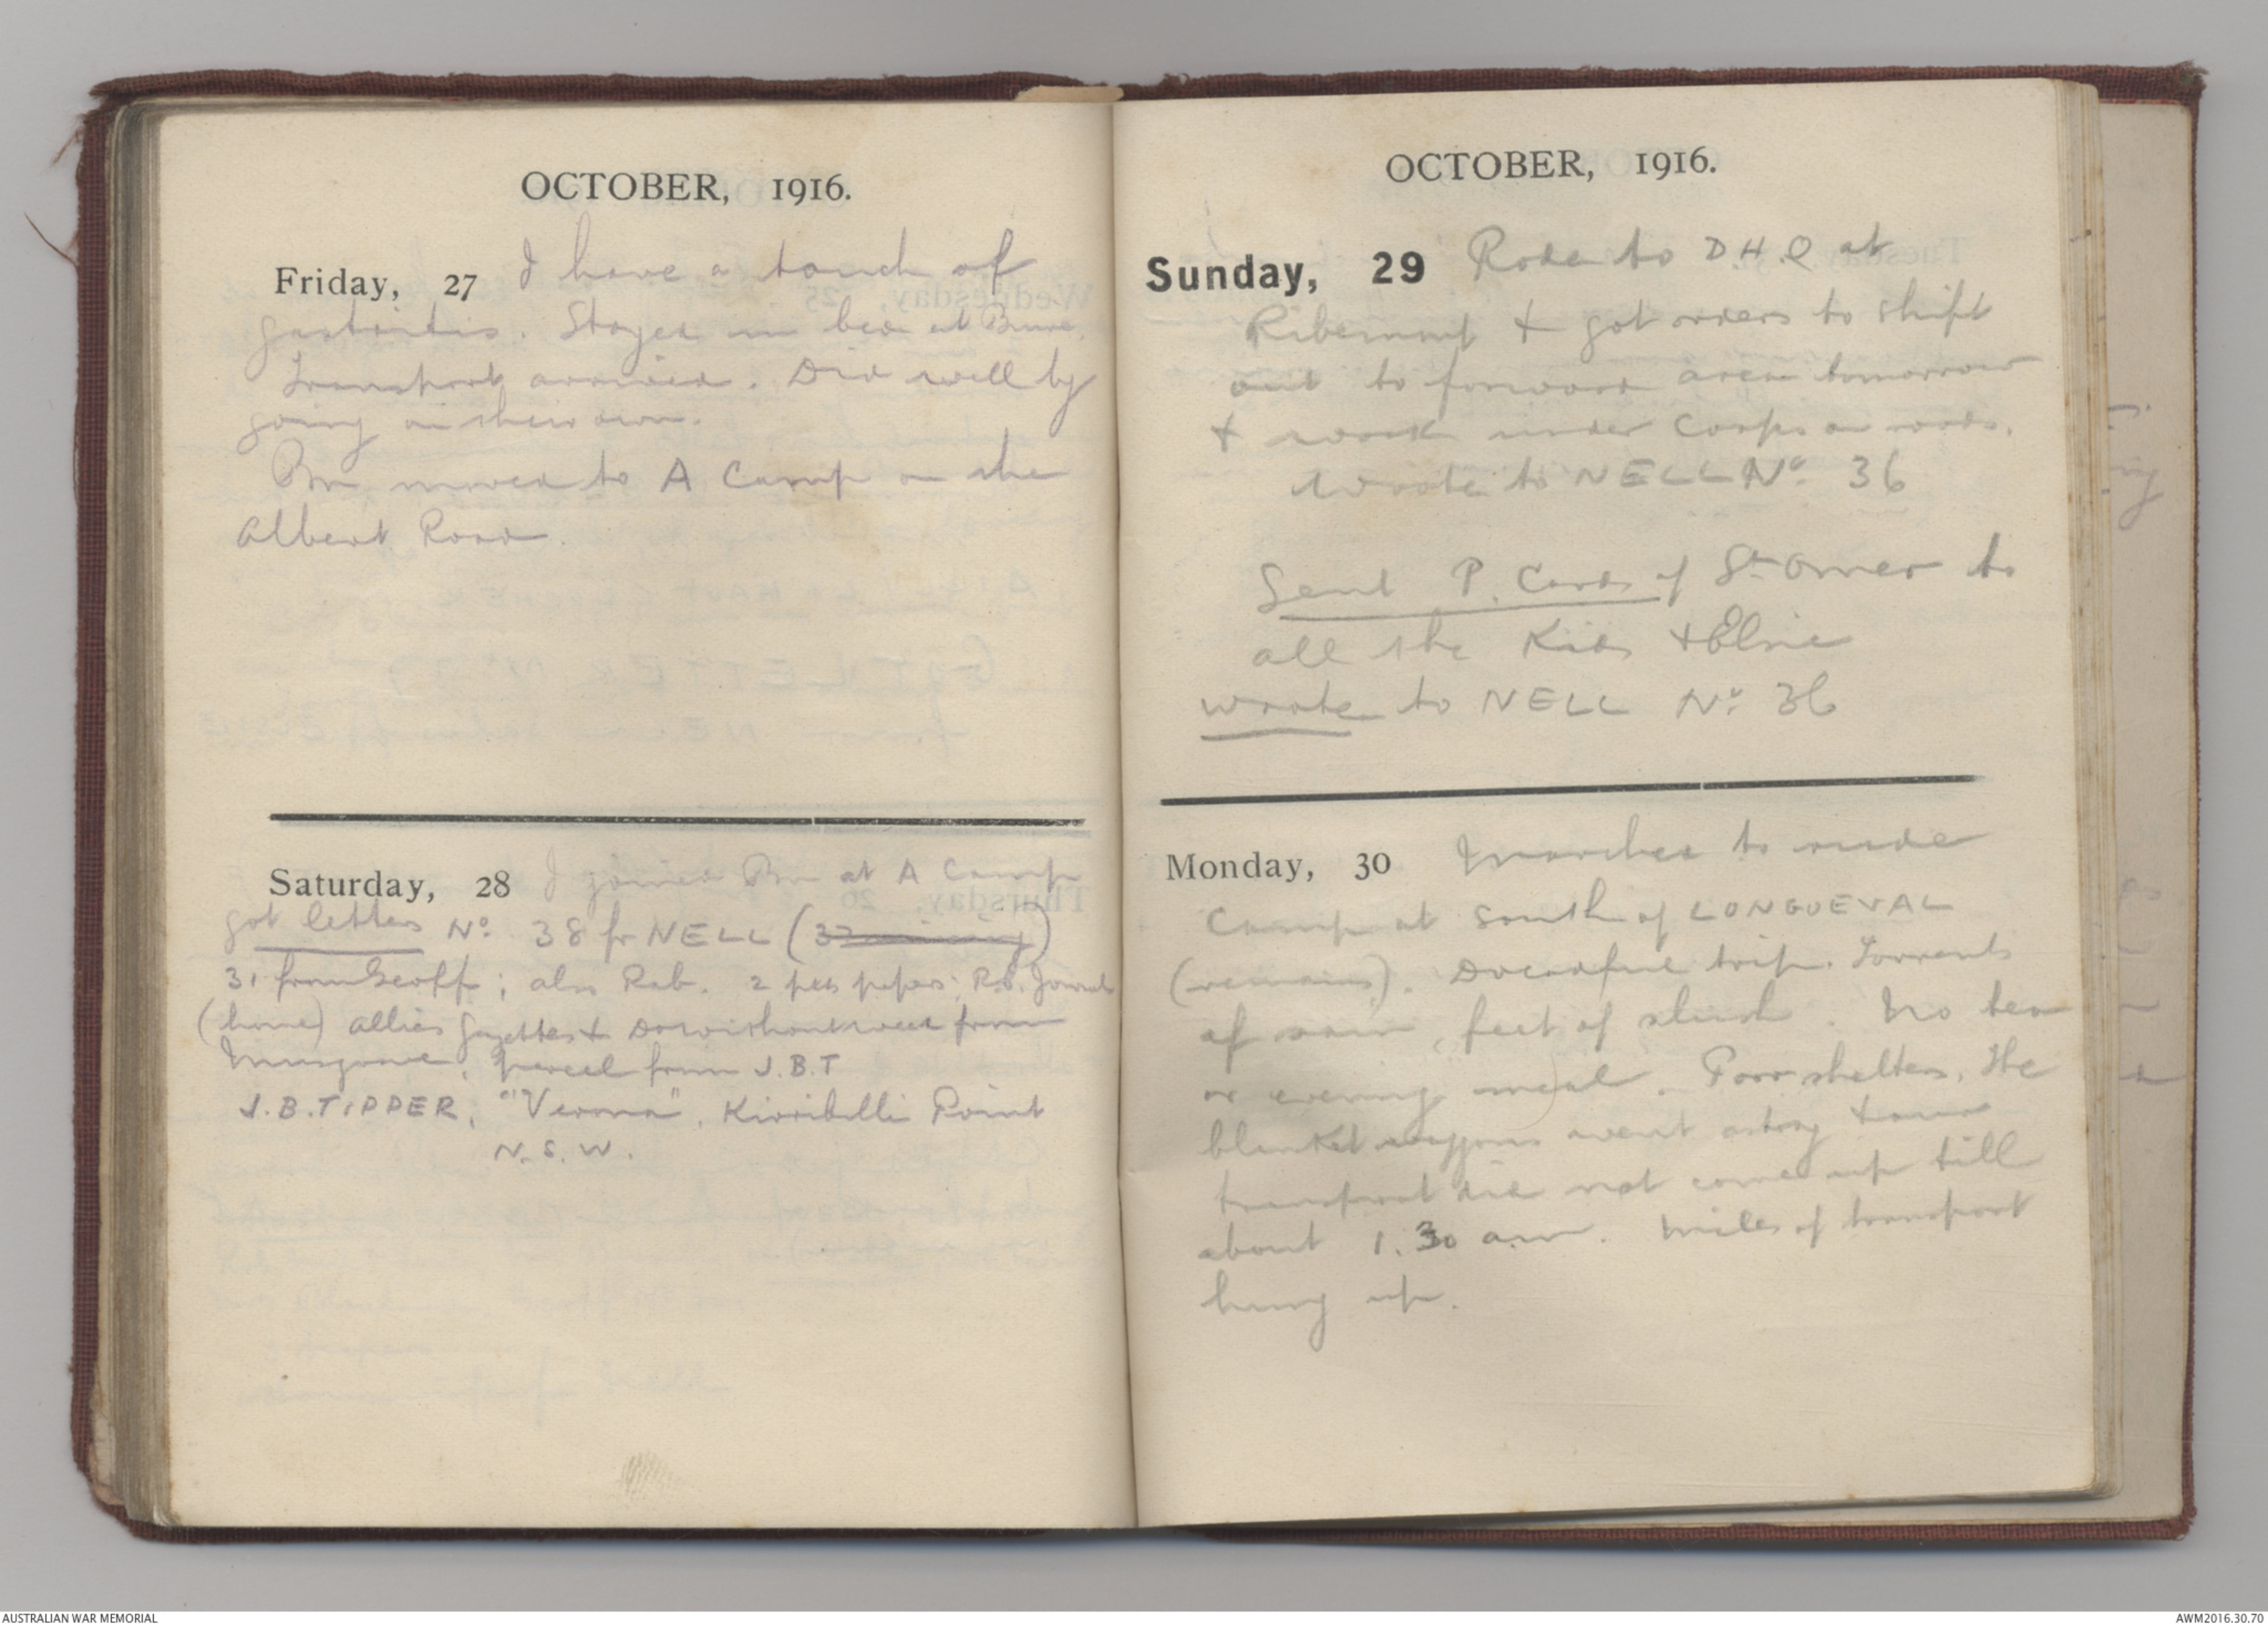 OCTOBER, 1916.
Friday, 27 I have a touch of
gastritis. Stayed in bed at Buire.
Transport arrived. Did well by
going on their own.
Bn moved to A Camp on the
Albert Road.
Saturday, 28 I joined Bn at A Camp
got letters No. 38 fr NELL (37 missing)
31 from Geoff; also Rab. 2 papers; R.S. Journals
(home) Allies Gazettes & from
Musgrove. parcel from J.B.T
J.B. TIPPER, "Verona", Kirribilli Point
N.S.W.
OCTOBER, 1916.
Sunday, 29 Rode to D.H.Q at
Ribemont & got orders to shift
out to forward area tomorrow
& work under Corps on roads.
Wrote to NELL No. 36
Sent P. Cards of St Omer to
all the Kids & Elsie
wrote to NELL No. 36
Monday, 30 Marched to rude
Camp at South of LONGUEVAL
(remains). Dreadful trip. Torrents
of rain, feet of slush. No tea
or evening meal. Poor shelters. The
blanket waggons went astray & our
transport did not come up till
about 1.30 a.m. Miles of transport
hung up.
AUSTRALIAN WAR MEMORIAL
AWM2016.30.70